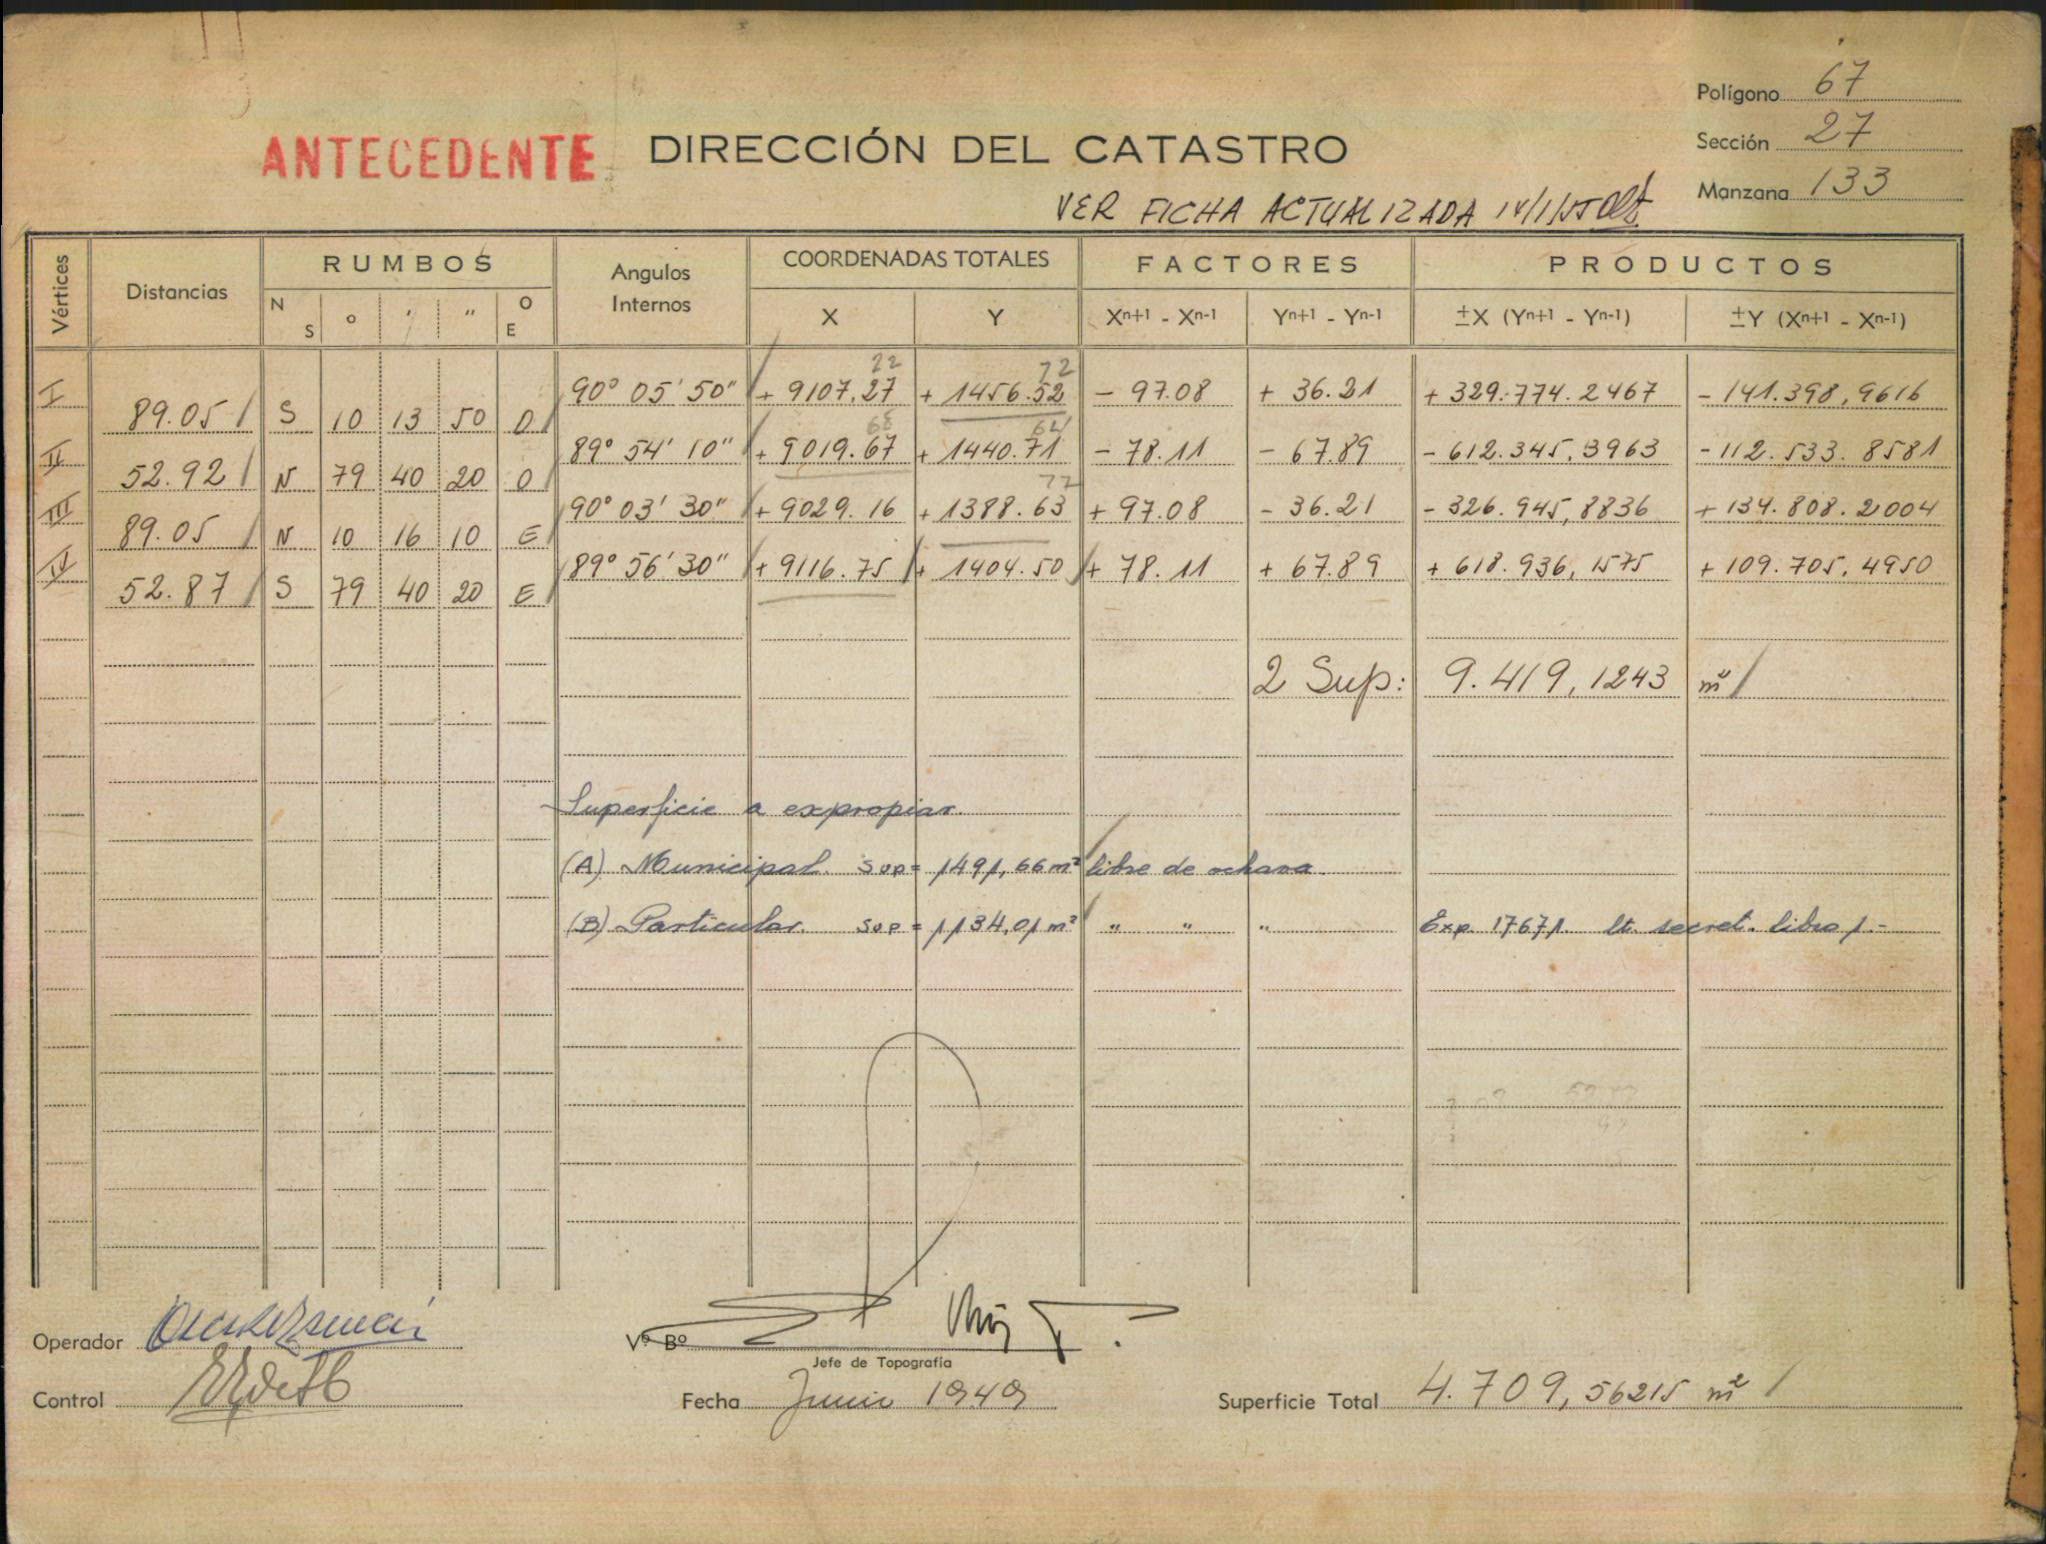 Polígono 67
ANTECEDENTE DIRECCIÓN DEL CATASTRO
Sección 27
Manzana 133
VER FICHA ACTUALIZADA 14/1/55
Vértices Distancias RUMBOS Angulos Internos COORDENADAS TOTALES FACTORES PRODUCTOS
N S ° ' " O E X Y Xn+1 - Xn-1 Yn+1 - Yn-1 ±X (Yn+1 - Yn-1) ±Y (Xn+1 - Xn-1)
22 72
I 90° 05' 50" + 9107.27 + 1456.52 - 97.08 + 36.21 + 329.774.2467 - 141.398,9616
89.05 S 10 13 50 O
68 64
II 89° 54' 10" + 9019.67 + 1440.71 - 78.11 - 67.89 - 612.345,3963 - 112.533.8581
52.92 N 79 40 20 O
77
III 90° 03' 30" + 9029.16 + 1388.63 + 97.08 - 36.21 - 326.945,8836 + 134.808.2004
89.05 N 10 16 10 E
IV 89° 56' 30" + 9116.75 + 1404.50 + 78.11 + 67.89 + 618.936,1575 + 109.705,4950
52.87 S 79 40 20 E
2 Sup: 9.419,1243 m²
Superficie a expropiar.
(A) Municipal. Sup = 1491,66 m² libre de ochava.
(B) Particular. Sup = 1134,01 m² " " " Exp. 17671. lt. secret. libro 1.-
Operador
Vº Bº
Jefe de Topografía
Control
Fecha Junio 1949
Superficie Total 4.709,56215 m²